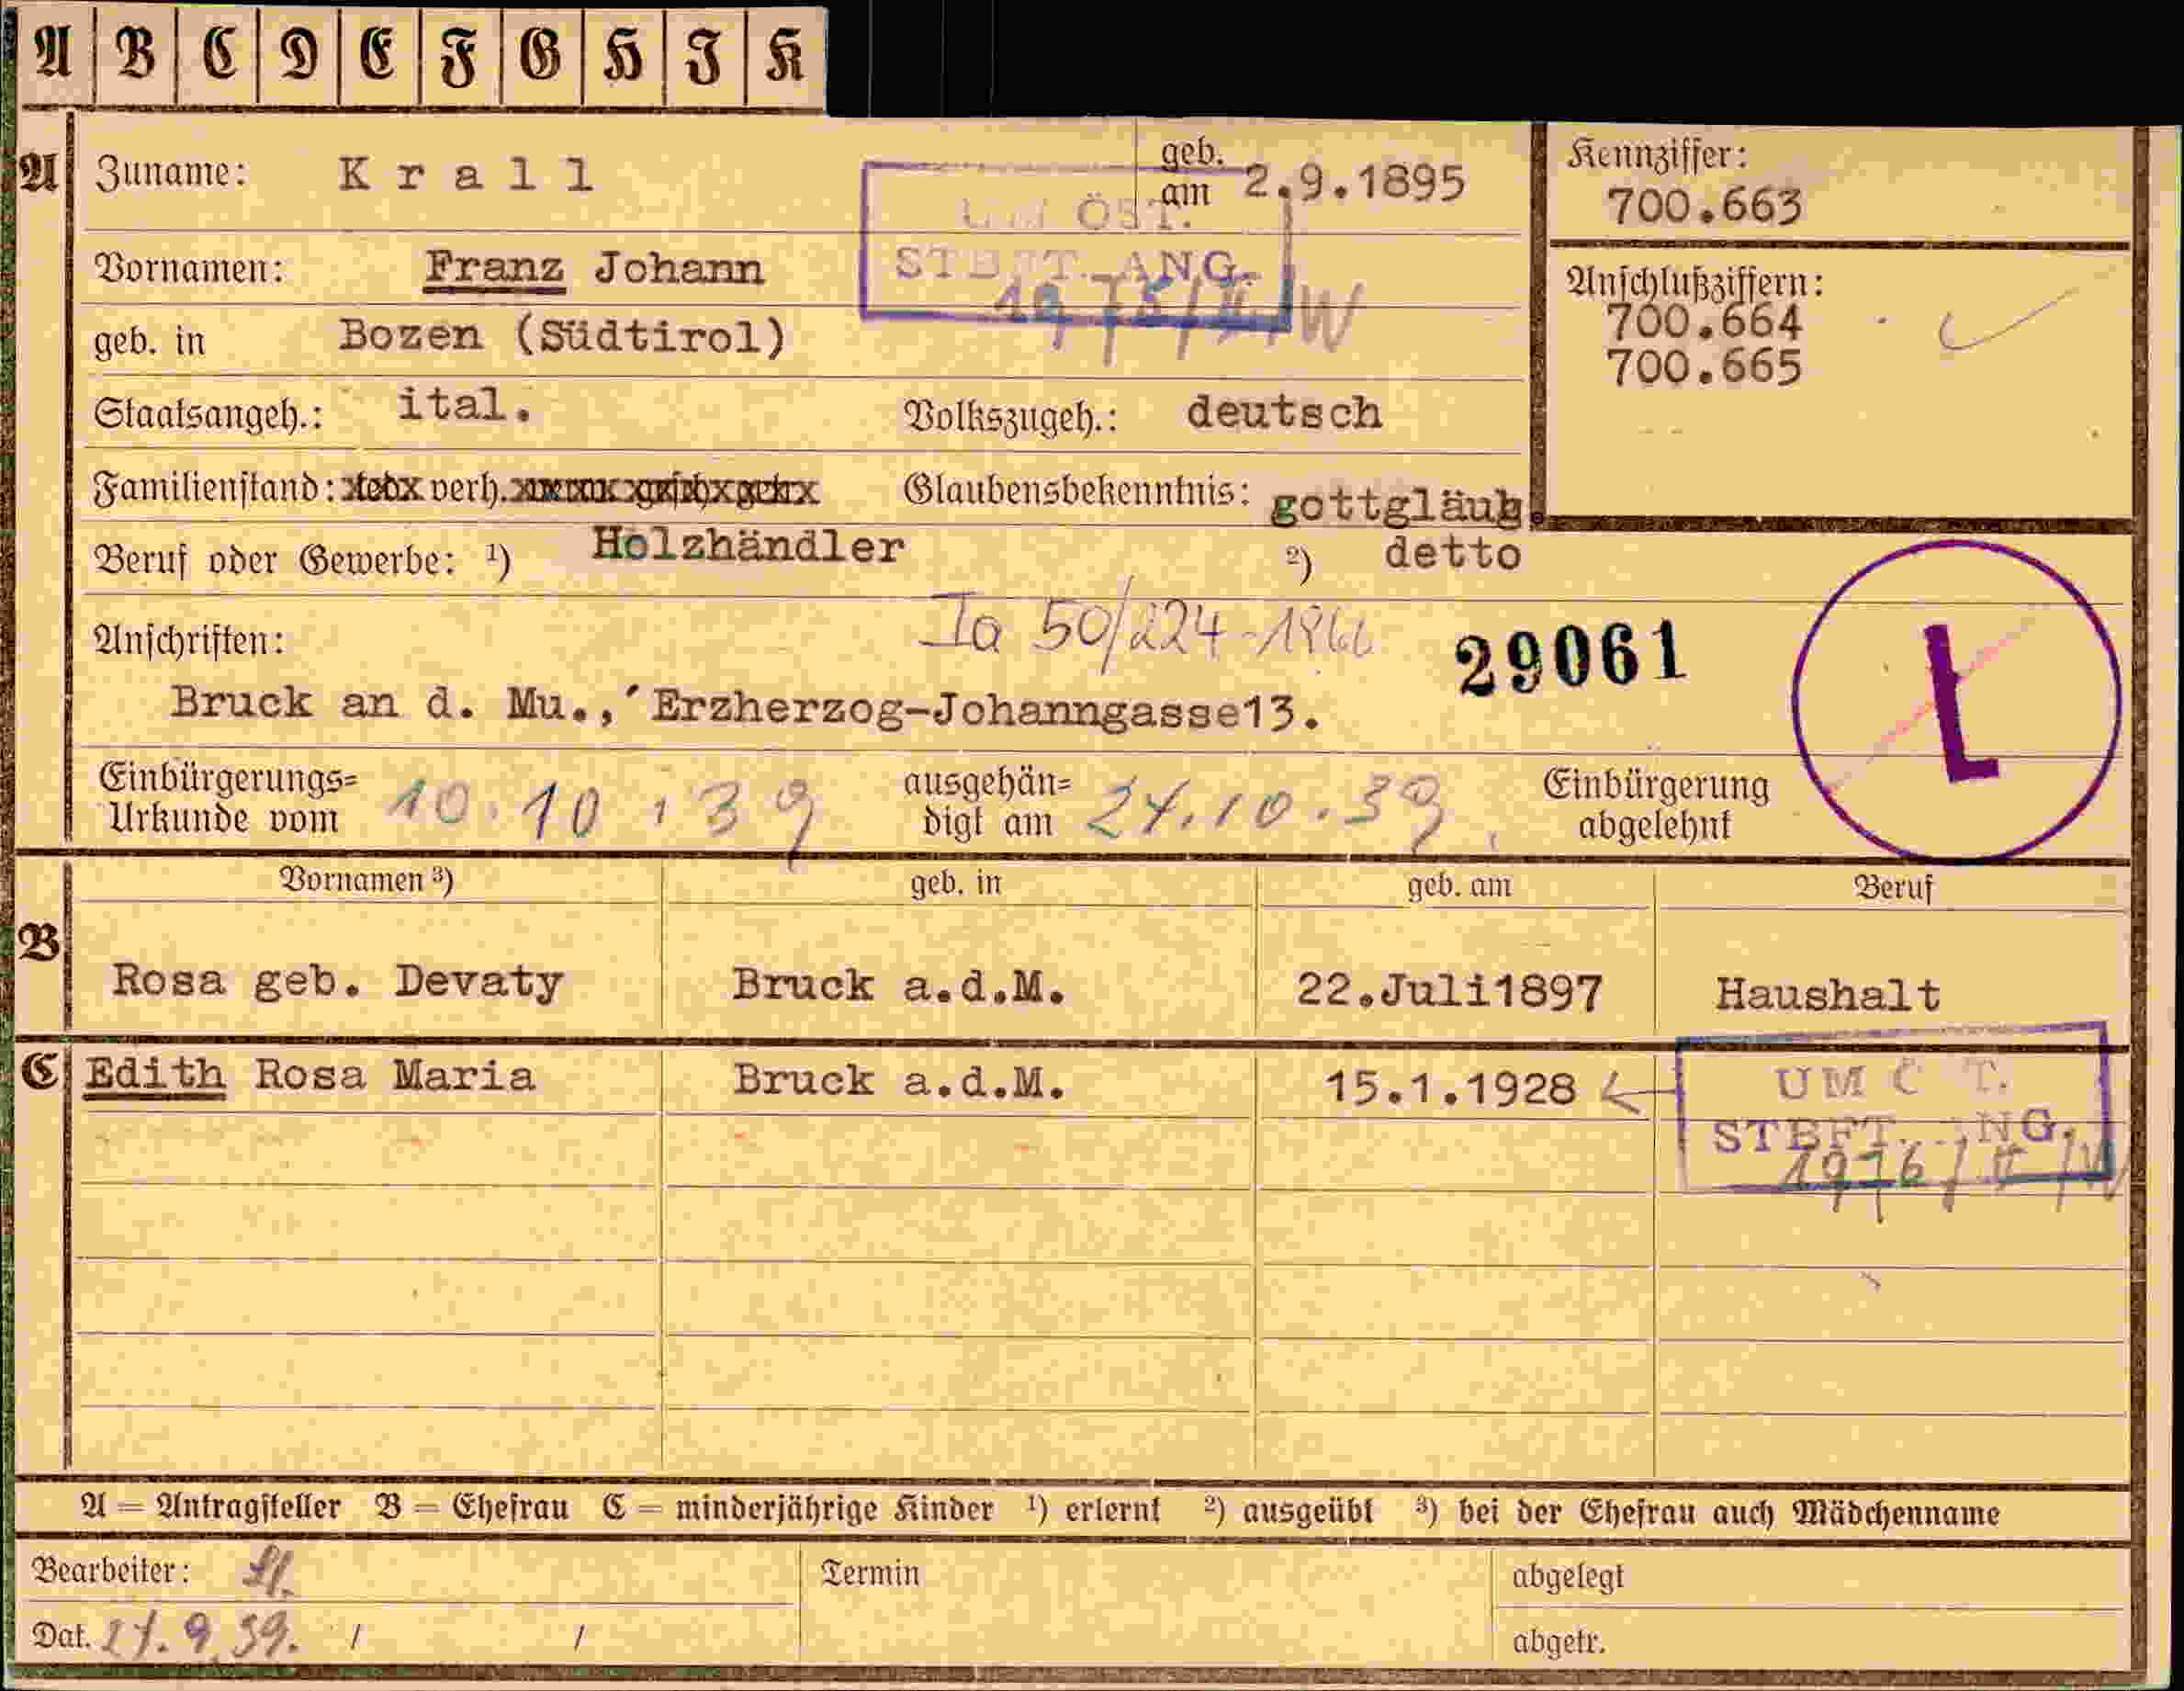 A B C D E F G H I K
A Zuname: Krall geb. am 2.9.1895
Kennziffer: 700.663
Vornamen: Franz Johann
geb. in Bozen (Südtirol)
UM ÖST.
STBFT. ANG.
Anschlußziffern:
700.664
700.665
Staatsangeh.: ital. Volkszugeh.: deutsch
Familienstand: verh. Glaubensbekenntnis: gottgläub.
Beruf oder Gewerbe: 1) Holzhändler 2) detto
Ia 50/224-1966
Anschriften: 29061
L
Bruck an d. Mu., Erzherzog-Johanngasse13.
Einbürgerungs=Urkunde vom 10.10.39 ausgehän=digt am 24.10.39. Einbürgerung abgelehnt
Vornamen 3) geb. in geb. am Beruf
B Rosa geb. Devaty Bruck a.d.M. 22.Juli1897 Haushalt
C Edith Rosa Maria Bruck a.d.M. 15.1.1928
STBFT. ANG.
1976/II/W
A = Antragsteller B = Ehefrau C = minderjährige Kinder 1) erlernt 2) ausgeübt 3) bei der Ehefrau auch Mädchenname
Bearbeiter: Termin abgelegt
Dat. 27.9.39. / / abgetr.